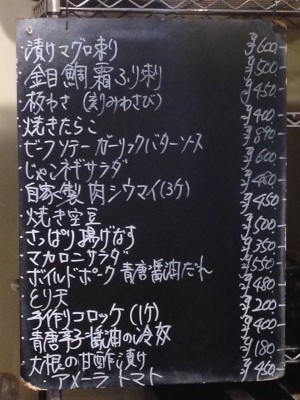 ・漬けマグロ刺り ¥600.
・金目鯛霜ふり刺 ¥500.
・板わさ (刻みわさび) ¥450.
・焼きたらこ ¥400.
・ビーフソテー ガーリックバターソース ¥890.
・じゃこネギサラダ ¥600.
・自家製肉シウマイ(3ケ) ¥450.
・焼き空豆 ¥450
・さっぱり揚げなす ¥500.
・マカロニサラダ ¥350
・ボイルドポーク 青唐醤油だれ ¥550.
・とり天 ¥480
・手作りコロッケ (1ケ) ¥200
・青唐辛子醤油の冷奴 ¥400.
・大根の甘酢漬け ¥180
・アメーラトマト ¥450